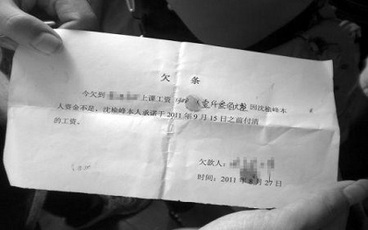 欠 条
今欠到 上课工资 因沈榆峰本
人资金不足，沈榆峰本人承诺于2011年9月15日之前付清
的工资。
欠款人：
时间：2011年8月27日